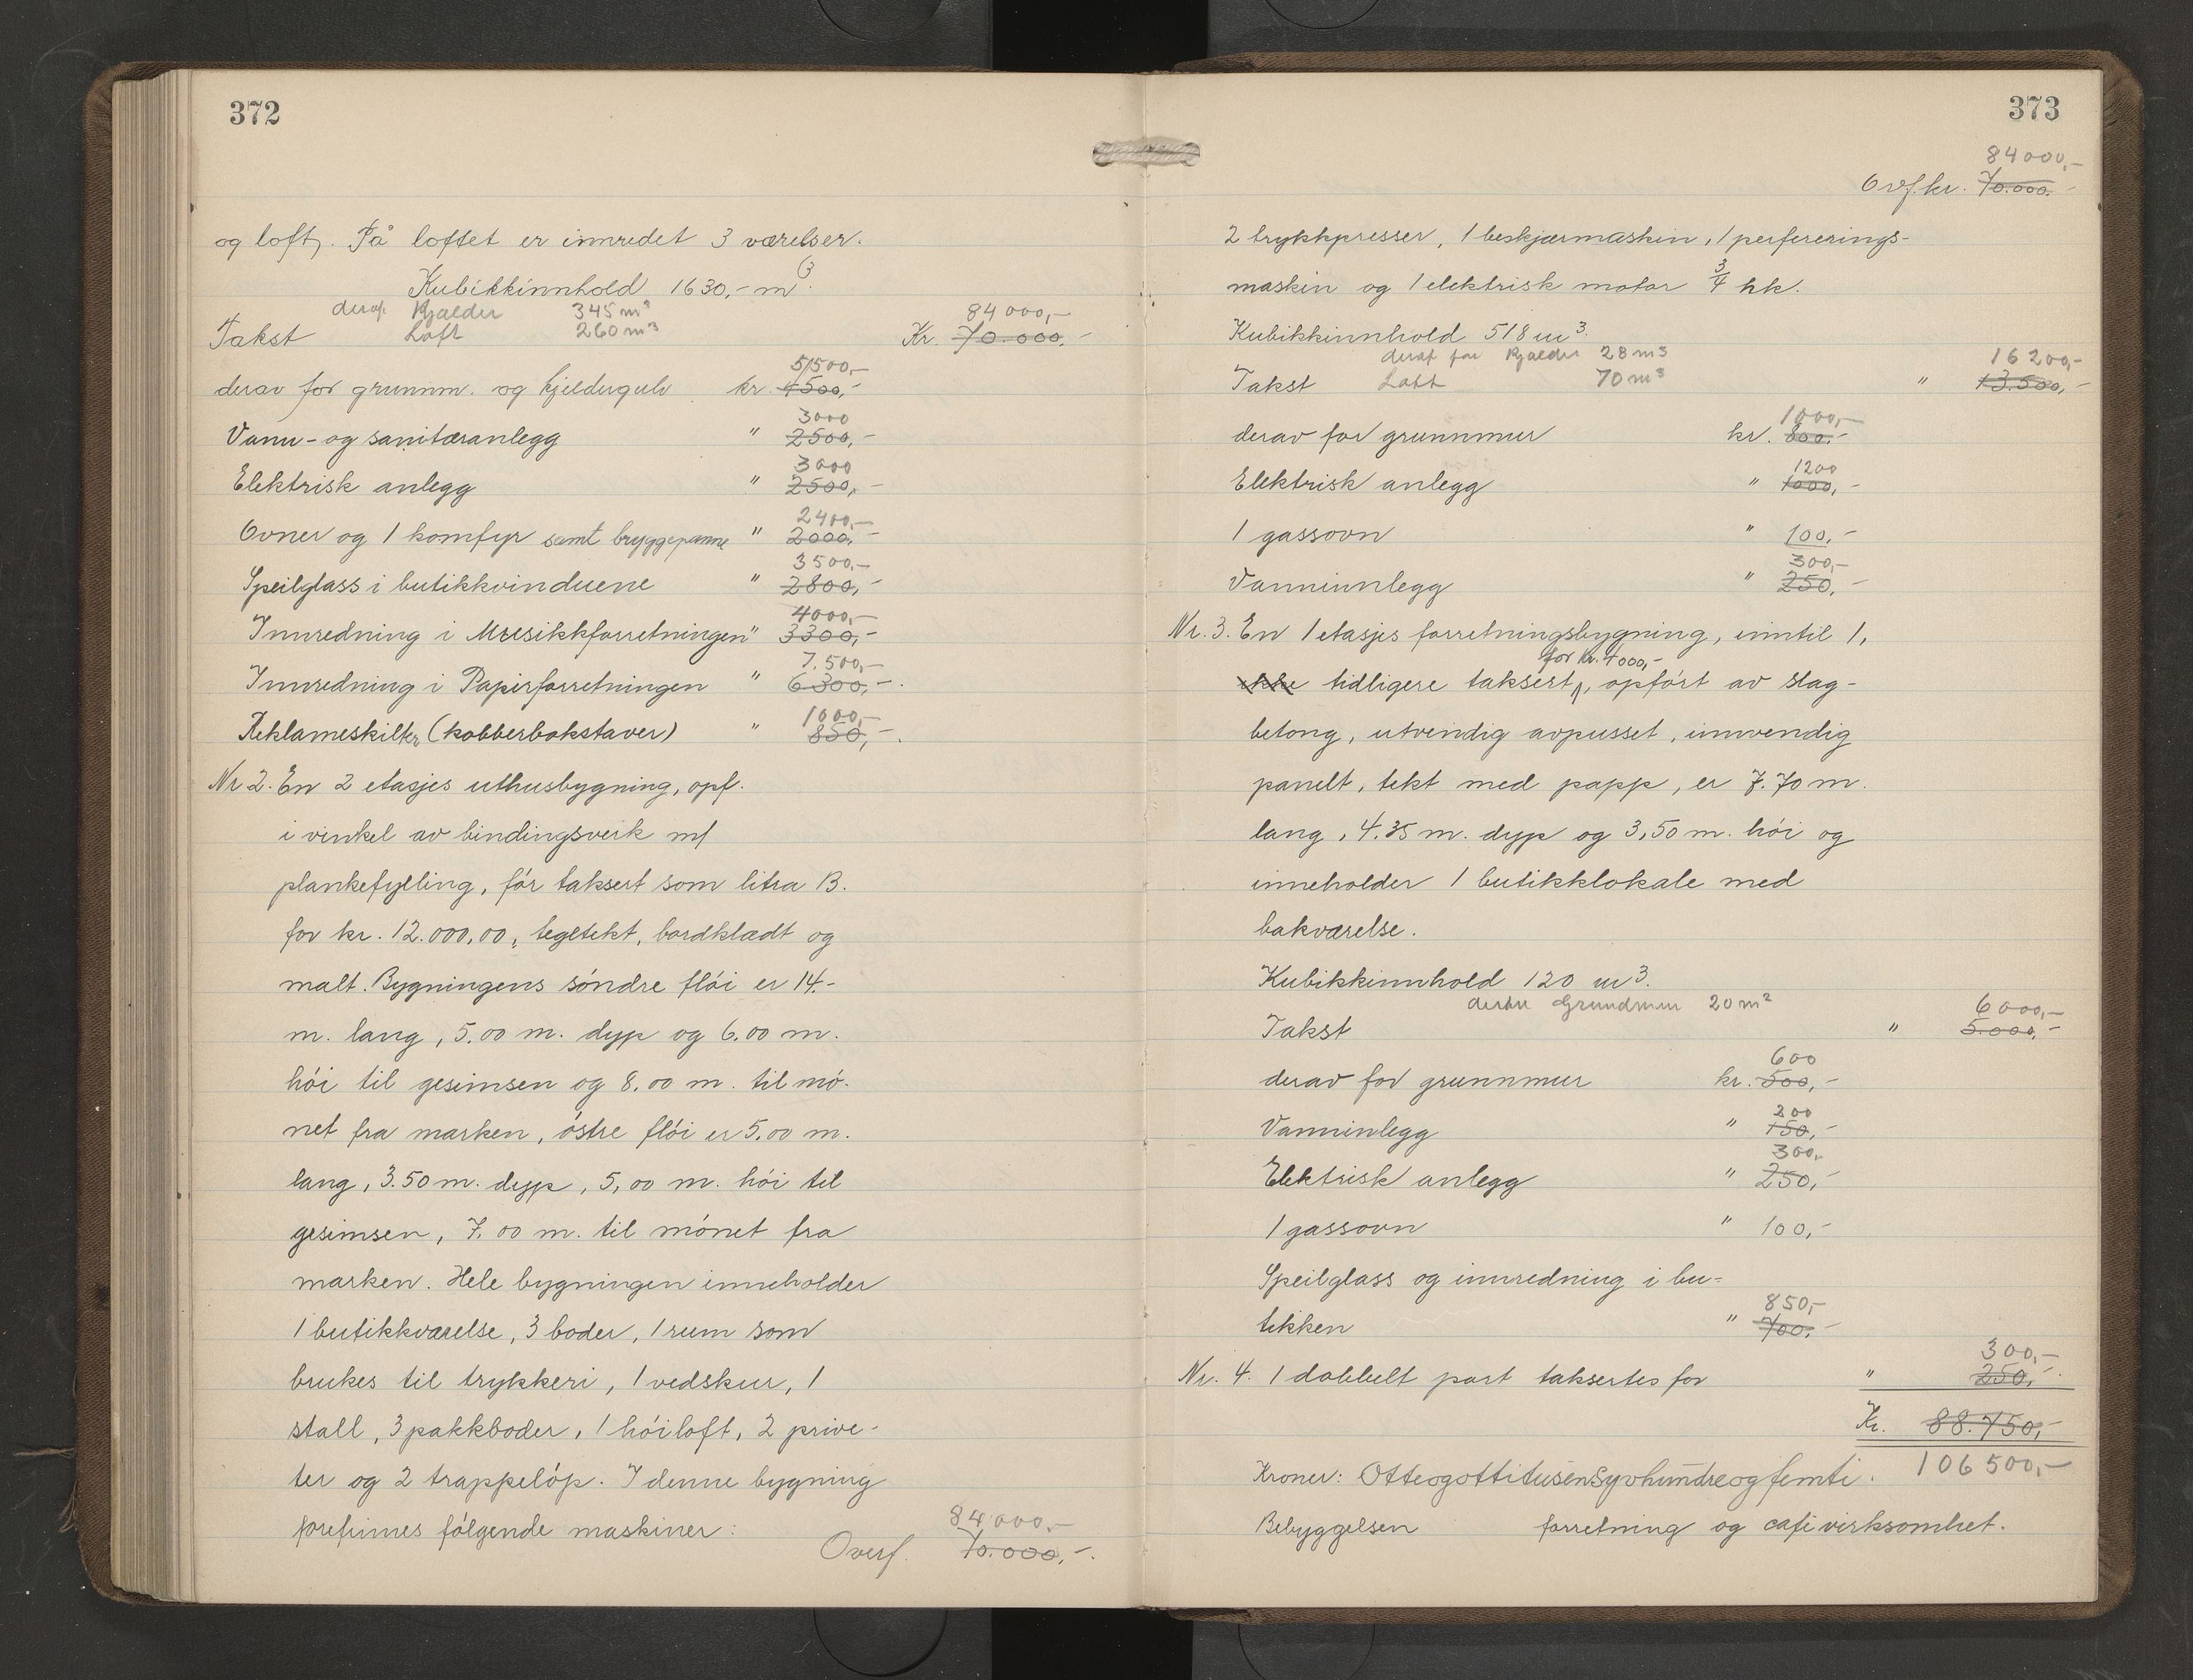 372
og loft). På loftet er innredet 3 værelser.
Kubikkinnhold 1630,- m3.
derav Kjælder 345 m3
Loft 260 m3
84000,-
Takst Kr. 70.000,-
5500,-
derav for grunnm. og kjeldergulv kr. 4500,-
3000
Vann- og sanitæranlegg " 2500,-
3000
Elektrisk anlegg " 2500,-
2400,-
Ovner og 1 komfyr samt bryggepanne " 2000,-
3500,-
Speilglass i butikkvinduene " 2800,-
4000,-
Innredning i Musikkforretningen " 3300,-
7.500,-
Innredning i Papirforretningen " 6300,-.
1000,-
Reklameskilter (kobberbokstaver) " 850,-.
Nr 2. En 2 etasjes uthusbygning, opf.
i vinkel av bindingsverk m/
plankefylling, før taksert som litra B.
for kr. 12.000,00, tegltekt, bordklædt og
malt. Bygningens søndre fløi er 14.-
m. lang, 5.00 m. dyp og 6.00 m.
høi til gesimsen og 8.00 m. til mø-
net fra marken, østre fløi er 5.00 m.
lang, 3.50 m. dyp, 5,00 m. høi til
gesimsen, 7.00 m. til mønet fra
marken. Hele bygningen inneholder
1 butikkværelse, 3 boder, 1 rum som
brukes til trykkeri, 1 vedskur, 1
stall, 3 pakkboder, 1 høiloft, 2 prive-
ter og 2 trappeløp. I denne bygning
forefinnes følgende maskiner:
84000,-
Overf. 70.000,-.
373
84000,-
Overf. kr. 70.000,-
2 trykkpresser, 1 beskjærmaskin, 1 perfererings-
maskin og 1 elektrisk motor 3/4 hk.
Kubikkinnhold 518 m3.
deraf for Kjælder 28 m3
Loft 70 m3
16200,-
Takst " 13.500,-
1000,-
derav for grunnmur kr. 800,-
1200
Elektrisk anlegg " 1000,-
1 gassovn " 100,-
300,-
Vanninnlegg " 250,-
Nr. 3. En 1 etasjes forretningsbygning, inntil 1,
for kr. 4000,-
ikke tidligere taksert, opført av slag-
betong, utvendig avpusset, innvendig
panelt, tekt med papp, er 7.70 m.
lang, 4.35 m. dyp og 3,50 m. høi og
inneholder 1 butikklokale med
bakværelse.
Kubikkinnhold 120 m3.
Grundmur 20 m2
6000,-
Takst " 5.000,-
600
derav for grunnmur kr. 500,-
200
Vanninlegg " 150,-
300,-
Elektrisk anlegg " 250,-
1 gassovn " 100,-
Speilglass og innredning i bu-
850,-
tikken " 700,-
300,-
Nr. 4. 1 dobbelt port taksertes for " 250,-
Kr. 88.750,-
106500,-
Kroner: Otteogottitusensyvhundreogfemti.
Bebyggelsen forretning og cafevirksomhet.